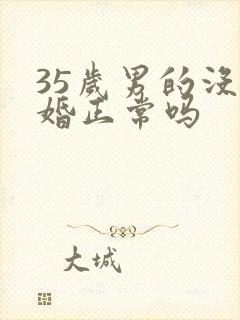 35歲男的没
婚正常吗
大城